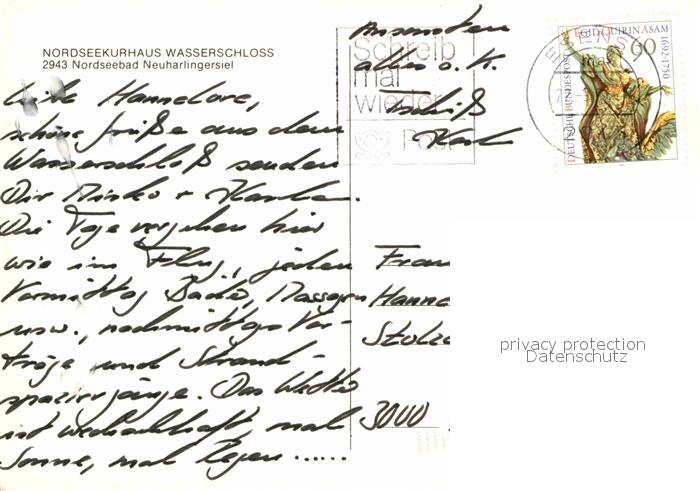 NORDSEEKURHAUS WASSERSCHLOSS
2943 Nordseebad Neuharlingersiel
Liebe Hannelore,
schöne Grüße aus dem
Wasserschloß senden
Dir Mirko + Karla.
Die Tage vergehen hier
wie im Flug, jeden
Vormittag Bäder, Massagen
usw., nachmittags Vor-
träge und Strand-
spaziergänge. Das Wetter
ist wechselhaft, mal
Sonne, mal Regen ......
Ansonsten
alles o. K.
Tschüß
Karla
Schreib
mal
wieder
Post
ESENS
EGID QUIRIN ASAM
1692-1750
60
DEUTSCHE BUNDESPOST
Frau
Hanne
Stolze
3000
privacy protection
Datenschutz